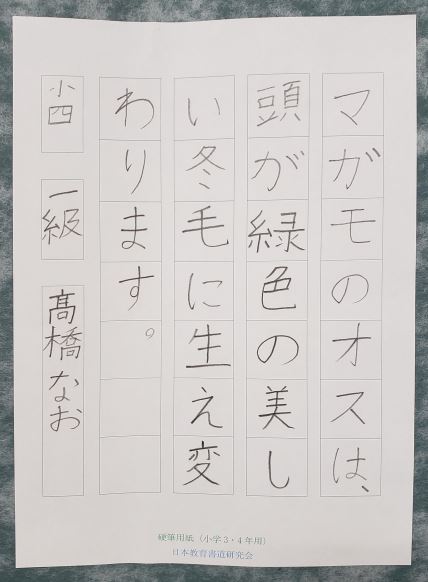 マガモのオスは、
頭が緑色の美し
い冬毛に生え変
わります。
小四 一級 髙橋なお
硬筆用紙（小学3・4年用）
日本教育書道研究会